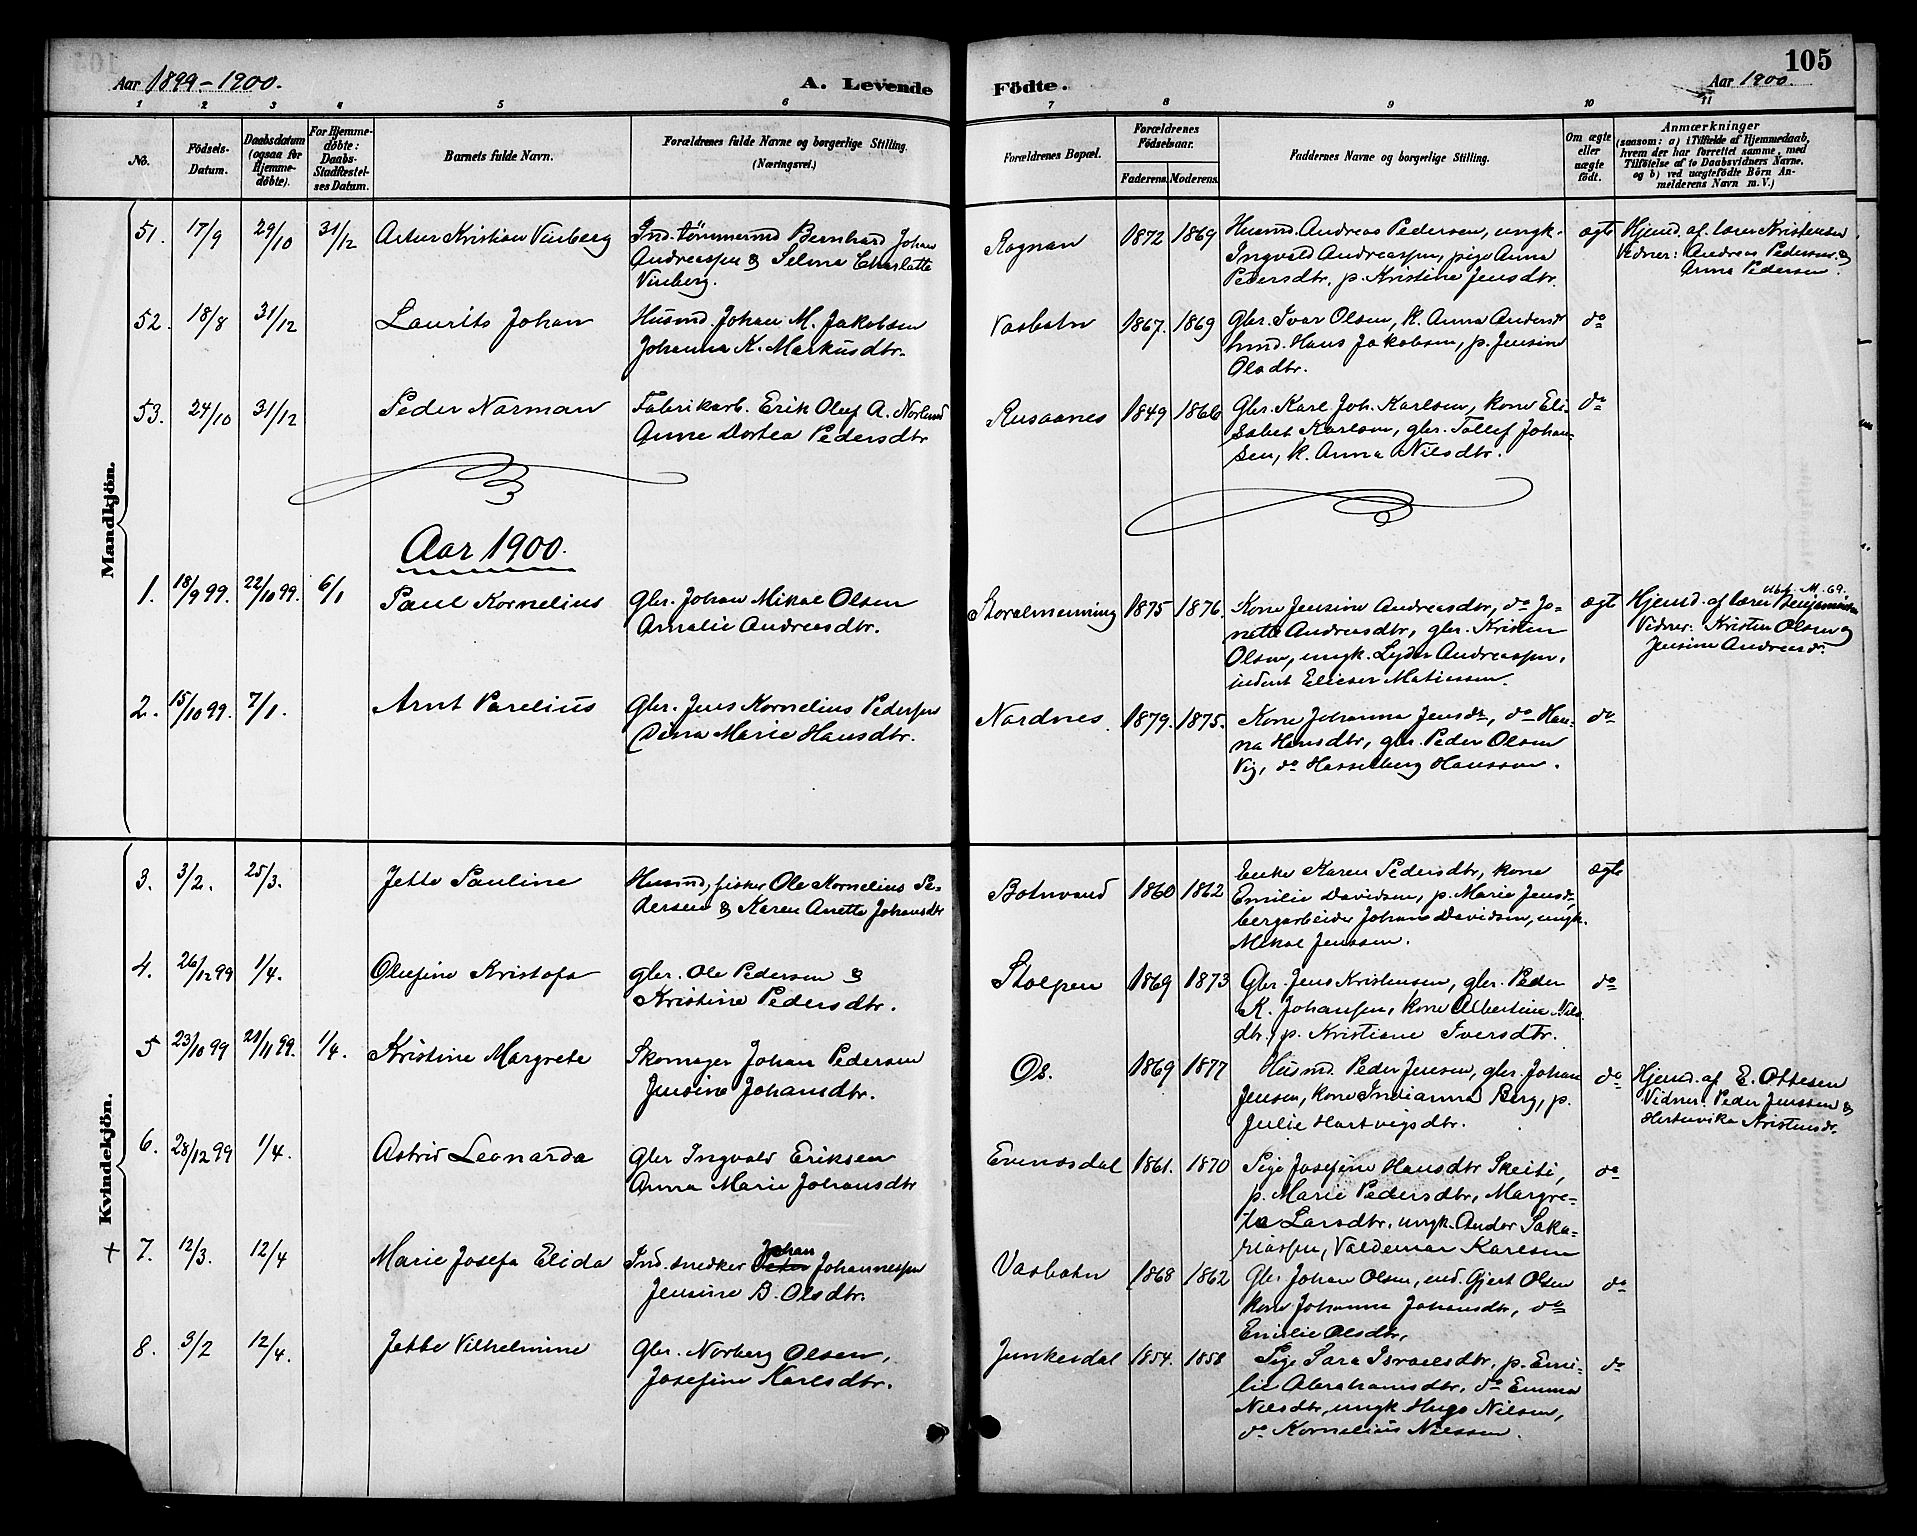 Aar 1899-1900.
A. Levende Födte.
Aar 1900.
105
1 2 3 4 5 6 7 8 9 10 11
No.
Födsels-Datum.
Daabsdatum (ogsaa for Hjemmedöbte).
For Hjemmedöbte: Daabs-Stadfæstelses Datum.
Barnets fulde Navn.
Forældrenes fulde Navne og borgerlige Stilling. (Næringsvei.)
Forældrenes Bopæl.
Forældrenes Födselsaar.
Faderens. Moderens.
Faddernes Navne og borgerlige Stilling.
Om ægte eller uægte födt.
Anmærkninger
(saasom: a) i Tilfælde af Hjemmedaab, hvem der har forrettet samme, med Tilföielse af to Daabsvidners Navne, og b) ved uægtefödte Börn Anmelderens Navn m. V.)
Mandkjön.
51. 17/9 29/10 31/12 Artur Kristian Vinberg
Ind. tömmermd Bernhard Johan
Andreassen & Selma Charlotte
Vinberg.
Rognan 1872 1869
Husmd. Andreas Pedersen, ungk.
Ingvald Andreassen, pige Anna
Pedersdtr. p. Kristine Jensdtr.
ægte
Hjemd. af lærer Kristensen
Vidner: Andreas Pedersen &
Anna Pedersen.
52. 18/8 31/12 Laurits Johan
Husmd. Johan M. Jakobsen
Johanna K. Markusdtr.
Vasbotn 1867. 1869
Gbr. Ivar Olsen, k. Anna Andersdr
husmd. Hans Jakobsen, p. Jensine
Olsdtr.
do
53. 24/10 31/12 Peder Norman
Fabrikarb. Erik Oluf A. Norlund
Anne Dortea Pedersdtr
Rusaanes 1849 1866
Gbr. Karl Joh. Karlsen, kone Eli-
sabet Karlsen, gbr. Tollef Johan-
sen, k. Anna Nilsdtr.
do
Aar 1900.
1. 18/9 99. 22/10 99. 6/1 Paul Kornelius
Gbr. Johan Mikal Olsen
Amalie Andreasdtr.
Storalmenning 1875 1876.
Kone Jensine Andreasdtr, do Jo-
nette Andreasdtr, gbr. Kristen
Olsen, ungk. Lyder Andreassen,
indent Elieser Matiessen.
ægte
Utsf. M. 69.
Hjemd. af lærer Benjaminsen
Vidner: Kristen Olsen og
Jensine Andreasdr.
2. 15/10 99. 7/1. Arnt Parelius
Gbr. Jens Kornelius Pedersen
Dina Marie Hansdtr.
Nordnes 1879. 1875.
Kone Johanna Jensdtr, do Han-
na Hansdtr, gbr. Peder Olsen
Vig, do Hasselberg Hanssen.
do
Kvindekjön.
3. 3/2. 25/3. Jette Pauline
Husmd, fisker Ole Kornelius Pe-
dersen & Karen Anette Johansdtr
Botnvand 1860 1862
Enke Karen Pedersdtr, kone
Emilie Davidsen, p. Marie Jensdr,
bergarbeider Johan Davidsen, ungk.
Mikal Jenssen.
ægte
4. 26/12 99 1/4. Olufine Kristofa
gbr. Ole Pedersen &
Kristine Pedersdtr.
Stolpen 1869 1873
Gbr. Jens Kristensen, gbr. Peder
K. Johansen, kone Albertine Nils-
dtr, p. Kristiane Iversdtr.
do
5 23/10 99 21/11 99. 1/4. Kristine Margrete
Skomager Johan Pedersen
Jensine Johansdtr.
Os. 1869 1877
Husmd. Peder Jensen, gbr. Johan
Jensen, kone Indianna Berg, p.
Julie Hartvigsdtr.
do
Hjemd. af E. Ottesen
Vidner: Peder Jenssen &
Hertinvika Kristensdr.
6. 28/12 99 1/4. Astrid Leonarda
Gbr Ingvald Eriksen
Anna Marie Johansdtr
Evenesdal 1861. 1870
Pige Josefine Hansdtr Skeiti,
p. Marie Pedersdtr, Margre-
te Larsdtr. ungk. Ander Saka-
riassen, Valdemar Karlsen
do
+ 7. 12/3. 12/4 Marie Josefa Elida
Ind. snedker Johan Johannessen
Jensine B. Olsdtr.
Vasbotn 1868 1862
Gbr Johan Olsen, ind. Gjert Olsen
kone Johanna Johansdtr, do
Emilie Olsdtr,
do
8. 3/2 12/4. Jette Vilhelmine
Gbr. Norberg Olsen,
Josefine Karlsdtr.
Junkersdal 1854. 1858
Pige Sara Israelsdtr. p. Emi-
lie Abrahamsdtr. do Emma
Nilsdtr, ungk Hugo Nilsen,
do Kornelius Nilssen.
do